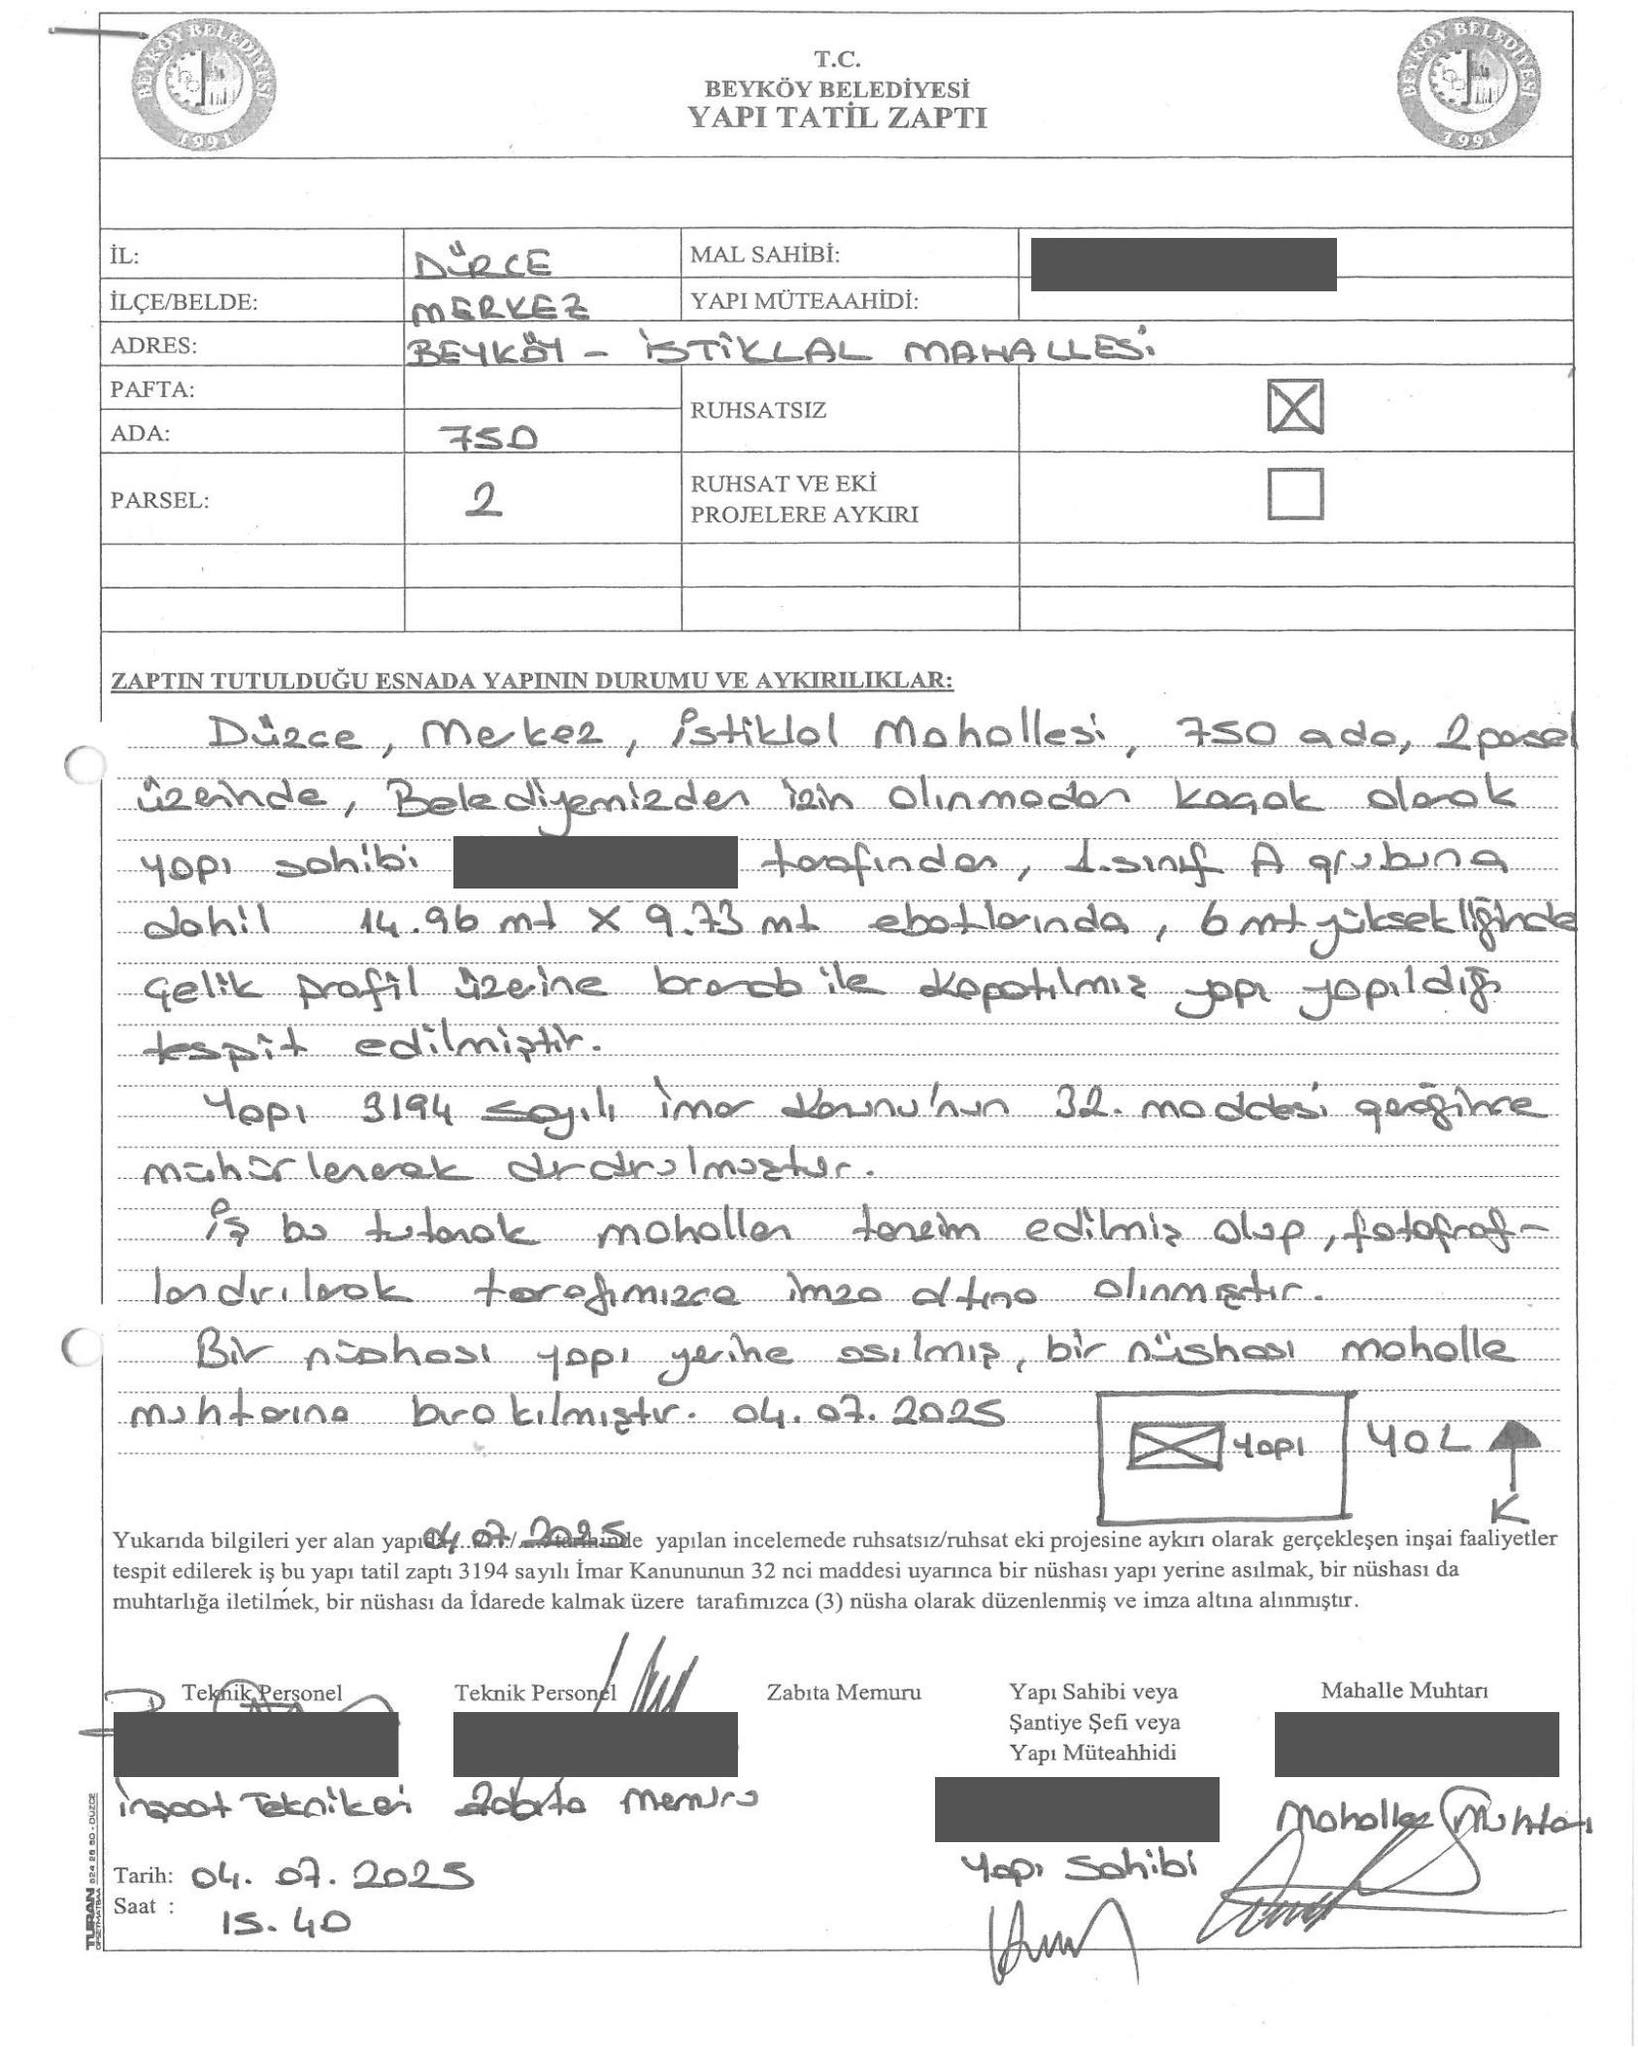 BEYKÖY BELEDİYESİ
1991
T.C.
BEYKÖY BELEDİYESİ
YAPI TATİL ZAPTI
BEYKÖY BELEDİYESİ
1991
İL: DÜZCE MAL SAHİBİ:
İLÇE/BELDE: MERKEZ YAPI MÜTEAAHİDİ:
ADRES: BEYKÖY - İSTİKLAL MAHALLESİ
PAFTA:
RUHSATSIZ
ADA: 750
PARSEL: 2 RUHSAT VE EKİ
PROJELERE AYKIRI
ZAPTIN TUTULDUĞU ESNADA YAPININ DURUMU VE AYKIRILIKLAR:
Düzce, Merkez, İstiklal Mahallesi, 750 ada, 2 parsel
üzerinde, Belediyemizden izin alınmadan kaçak olarak
yapı sahibi tarafından, 1.sınıf A grubuna
dahil 14.96 mt X 9.73 mt ebatlarında, 6 mt yüksekliğinde
çelik profil üzerine branda ile kapatılmış yapı yapıldığı
tespit edilmiştir.
Yapı 3194 sayılı İmar Kanunu'nun 32. maddesi gereğince
mühürlenerek durdurulmuştur.
İş bu tutanak mahallen tanzim edilmiş olup, fotoğraf-
landırılarak tarafımızca imza altına alınmıştır.
Bir nüshası yapı yerine asılmış, bir nüshası mahalle
muhtarına bırakılmıştır. 04.07.2025
Yapı YOL
K
Yukarıda bilgileri yer alan yapıda 04.07/2025 tarihinde yapılan incelemede ruhsatsız/ruhsat eki projesine aykırı olarak gerçekleşen inşai faaliyetler
tespit edilerek iş bu yapı tatil zaptı 3194 sayılı İmar Kanununun 32 nci maddesi uyarınca bir nüshası yapı yerine asılmak, bir nüshası da
muhtarlığa iletilmek, bir nüshası da İdarede kalmak üzere tarafımızca (3) nüsha olarak düzenlenmiş ve imza altına alınmıştır.
Teknik Personel Teknik Personel Zabıta Memuru Yapı Sahibi veya Mahalle Muhtarı
Şantiye Şefi veya
Yapı Müteahhidi
İnşaat Teknikeri Zabıta Memuru
Mahalle Muhtarı
Yapı Sahibi
Tarih: 04.07.2025
Saat : 15.40
TURAN 524 26 60 - DÜZCE
OFSET MATBAA